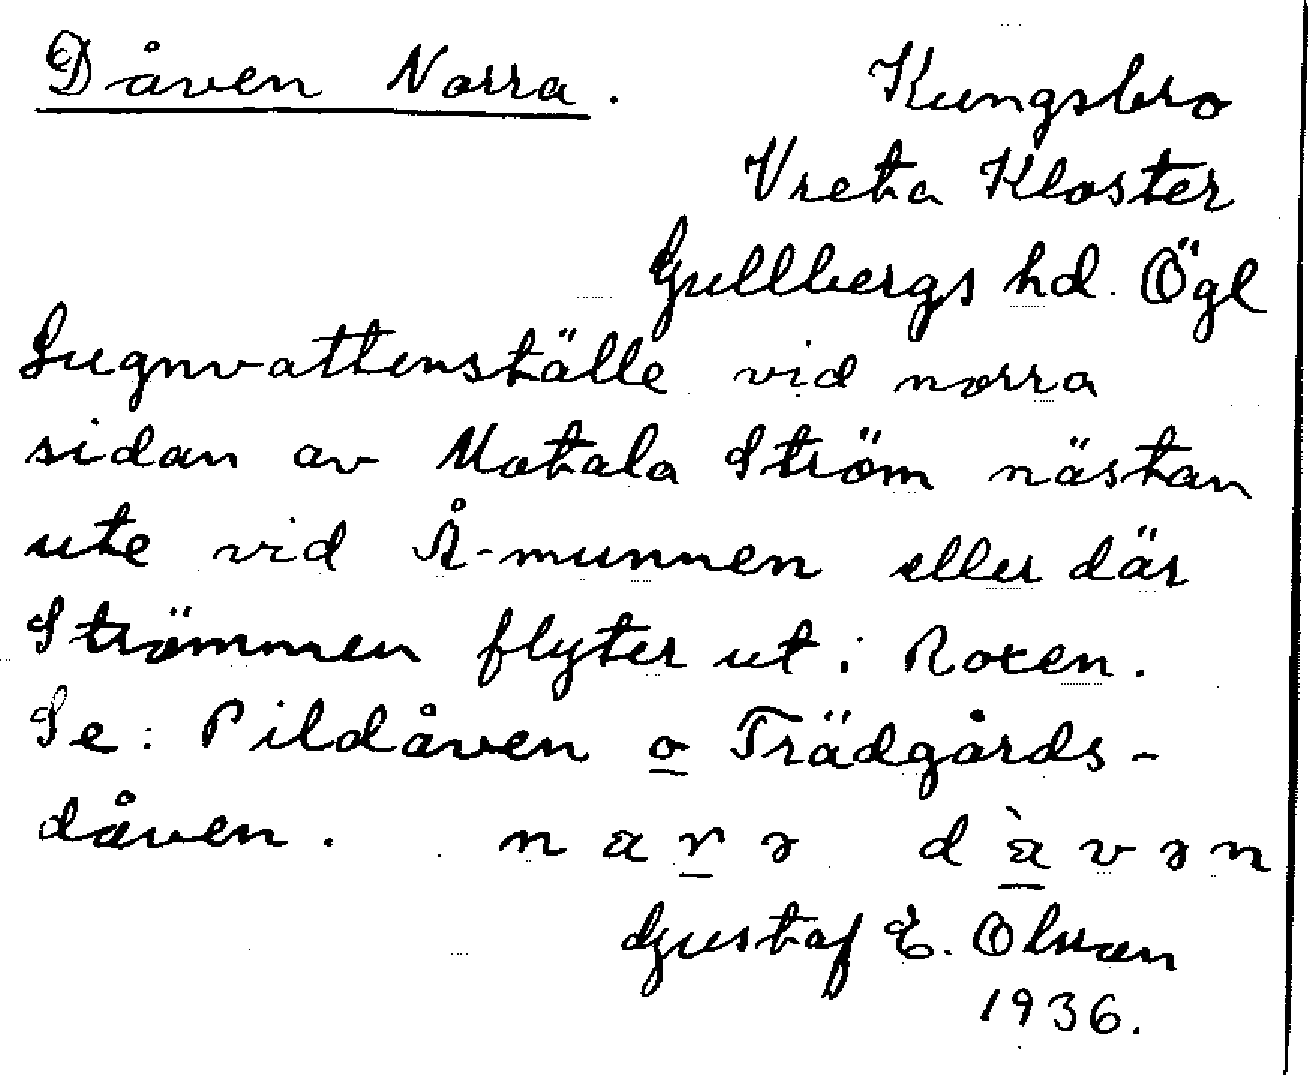 Dåven Norra.
Kungsbro
Vreta Kloster
Gullbergs hd. Ögl
Lugnvattenställe vid norra
sidan av Motala Ström nästan
ute vid Å-munnen eller där
Strömmen flyter ut i Roxen.
Se: Pildåven o Trädgårds-
dåven. narə dàvən
Gustaf E. Olsson
1936.